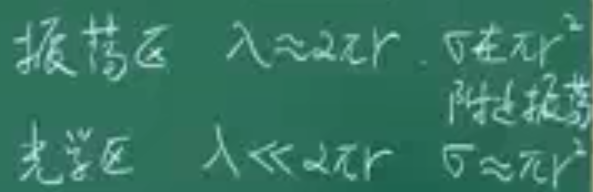 振荡区 λ≈2πr. σ在πr²
附近振荡
光学区 λ≪2πr σ≈πr²